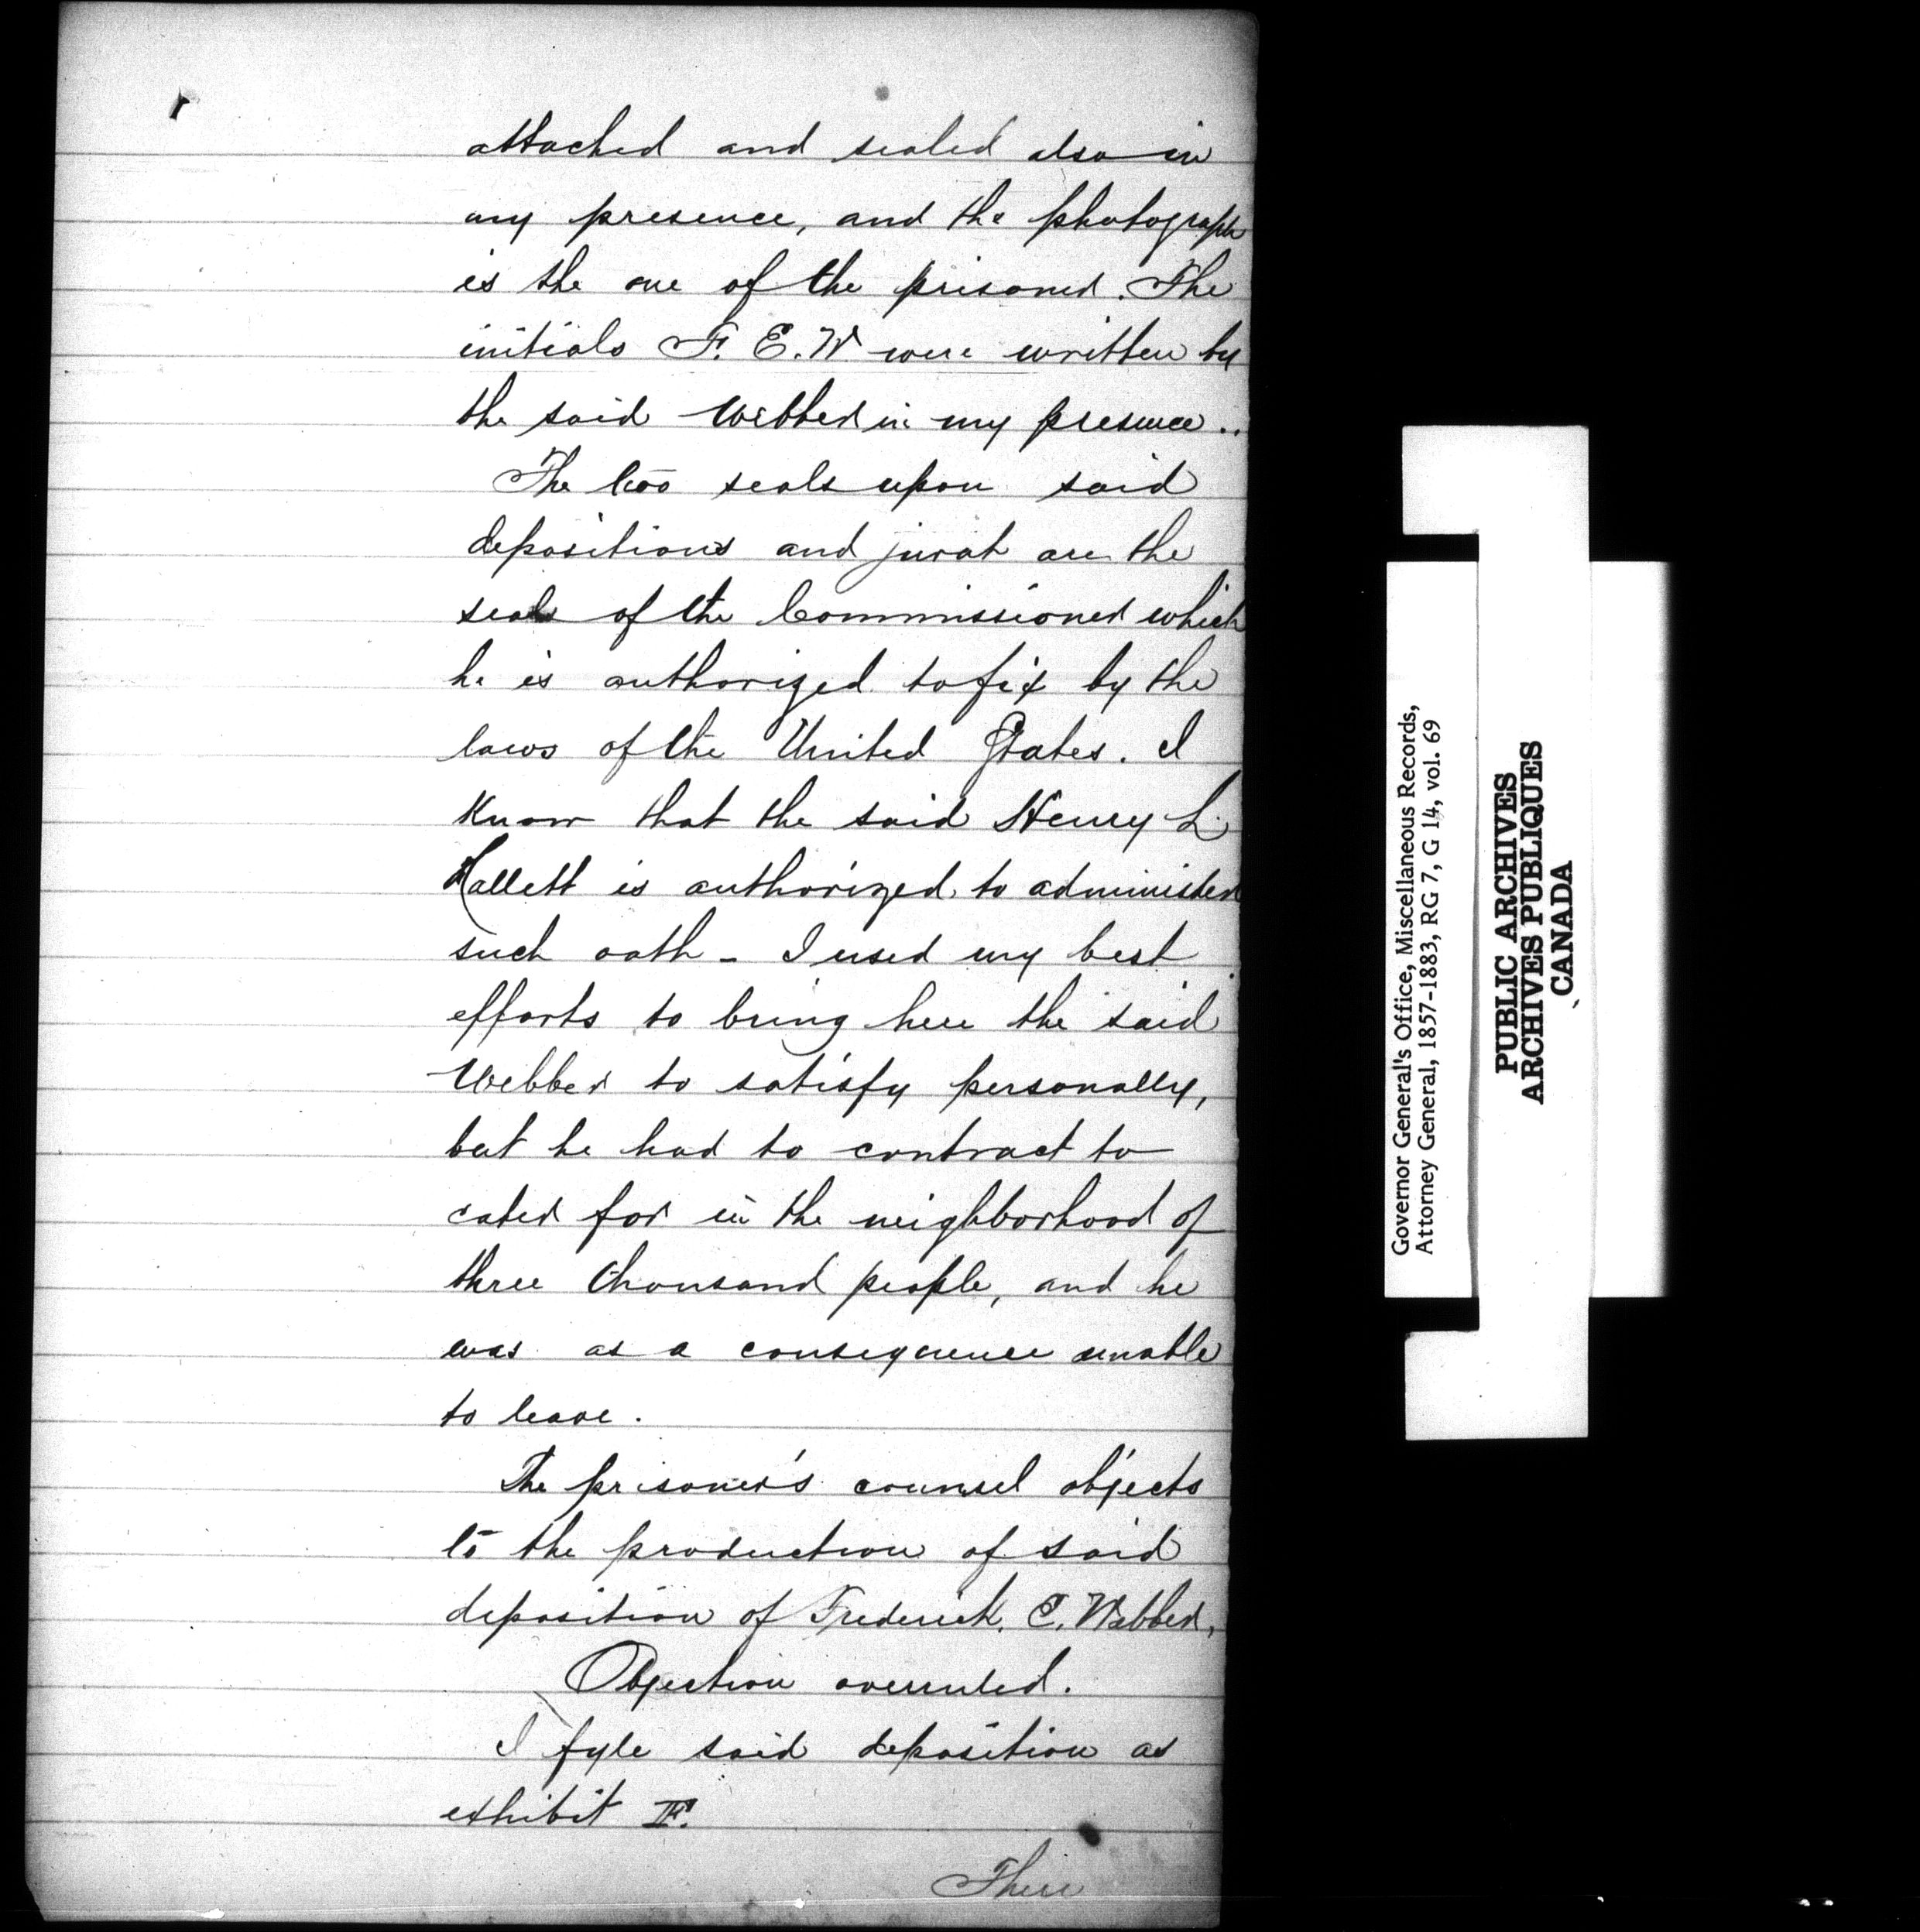 attached and sealed also in
my presence, and the photograph
is the one of the prisoner. The
initials F. E. W were written by
the said Webber in my presence..
The two seals upon said
depositions and jurat are the
seals of the Commissioner which
he is authorized to fix by the
laws of the United States. I
know that the said Henry L
Hallett is authorized to administer
such oath - I used my best
efforts to bring here the said
Webber to satisfy personally,
but he had to contract to
cater for in the neighborhood of
three thousand people, and he
was as a consequence unable
to leave.
The prisoner's counsel objects
to the production of said
deposition of Frederick. E. Webber.
Objection overruled.
I fyle said deposition as
exhibit F.
There
Governor General's Office, Miscellaneous Records,
Attorney General, 1857-1883, RG 7, G 14, vol. 69
PUBLIC ARCHIVES
ARCHIVES PUBLIQUES
CANADA